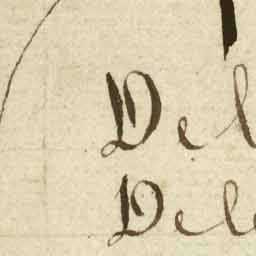 Del
Dele